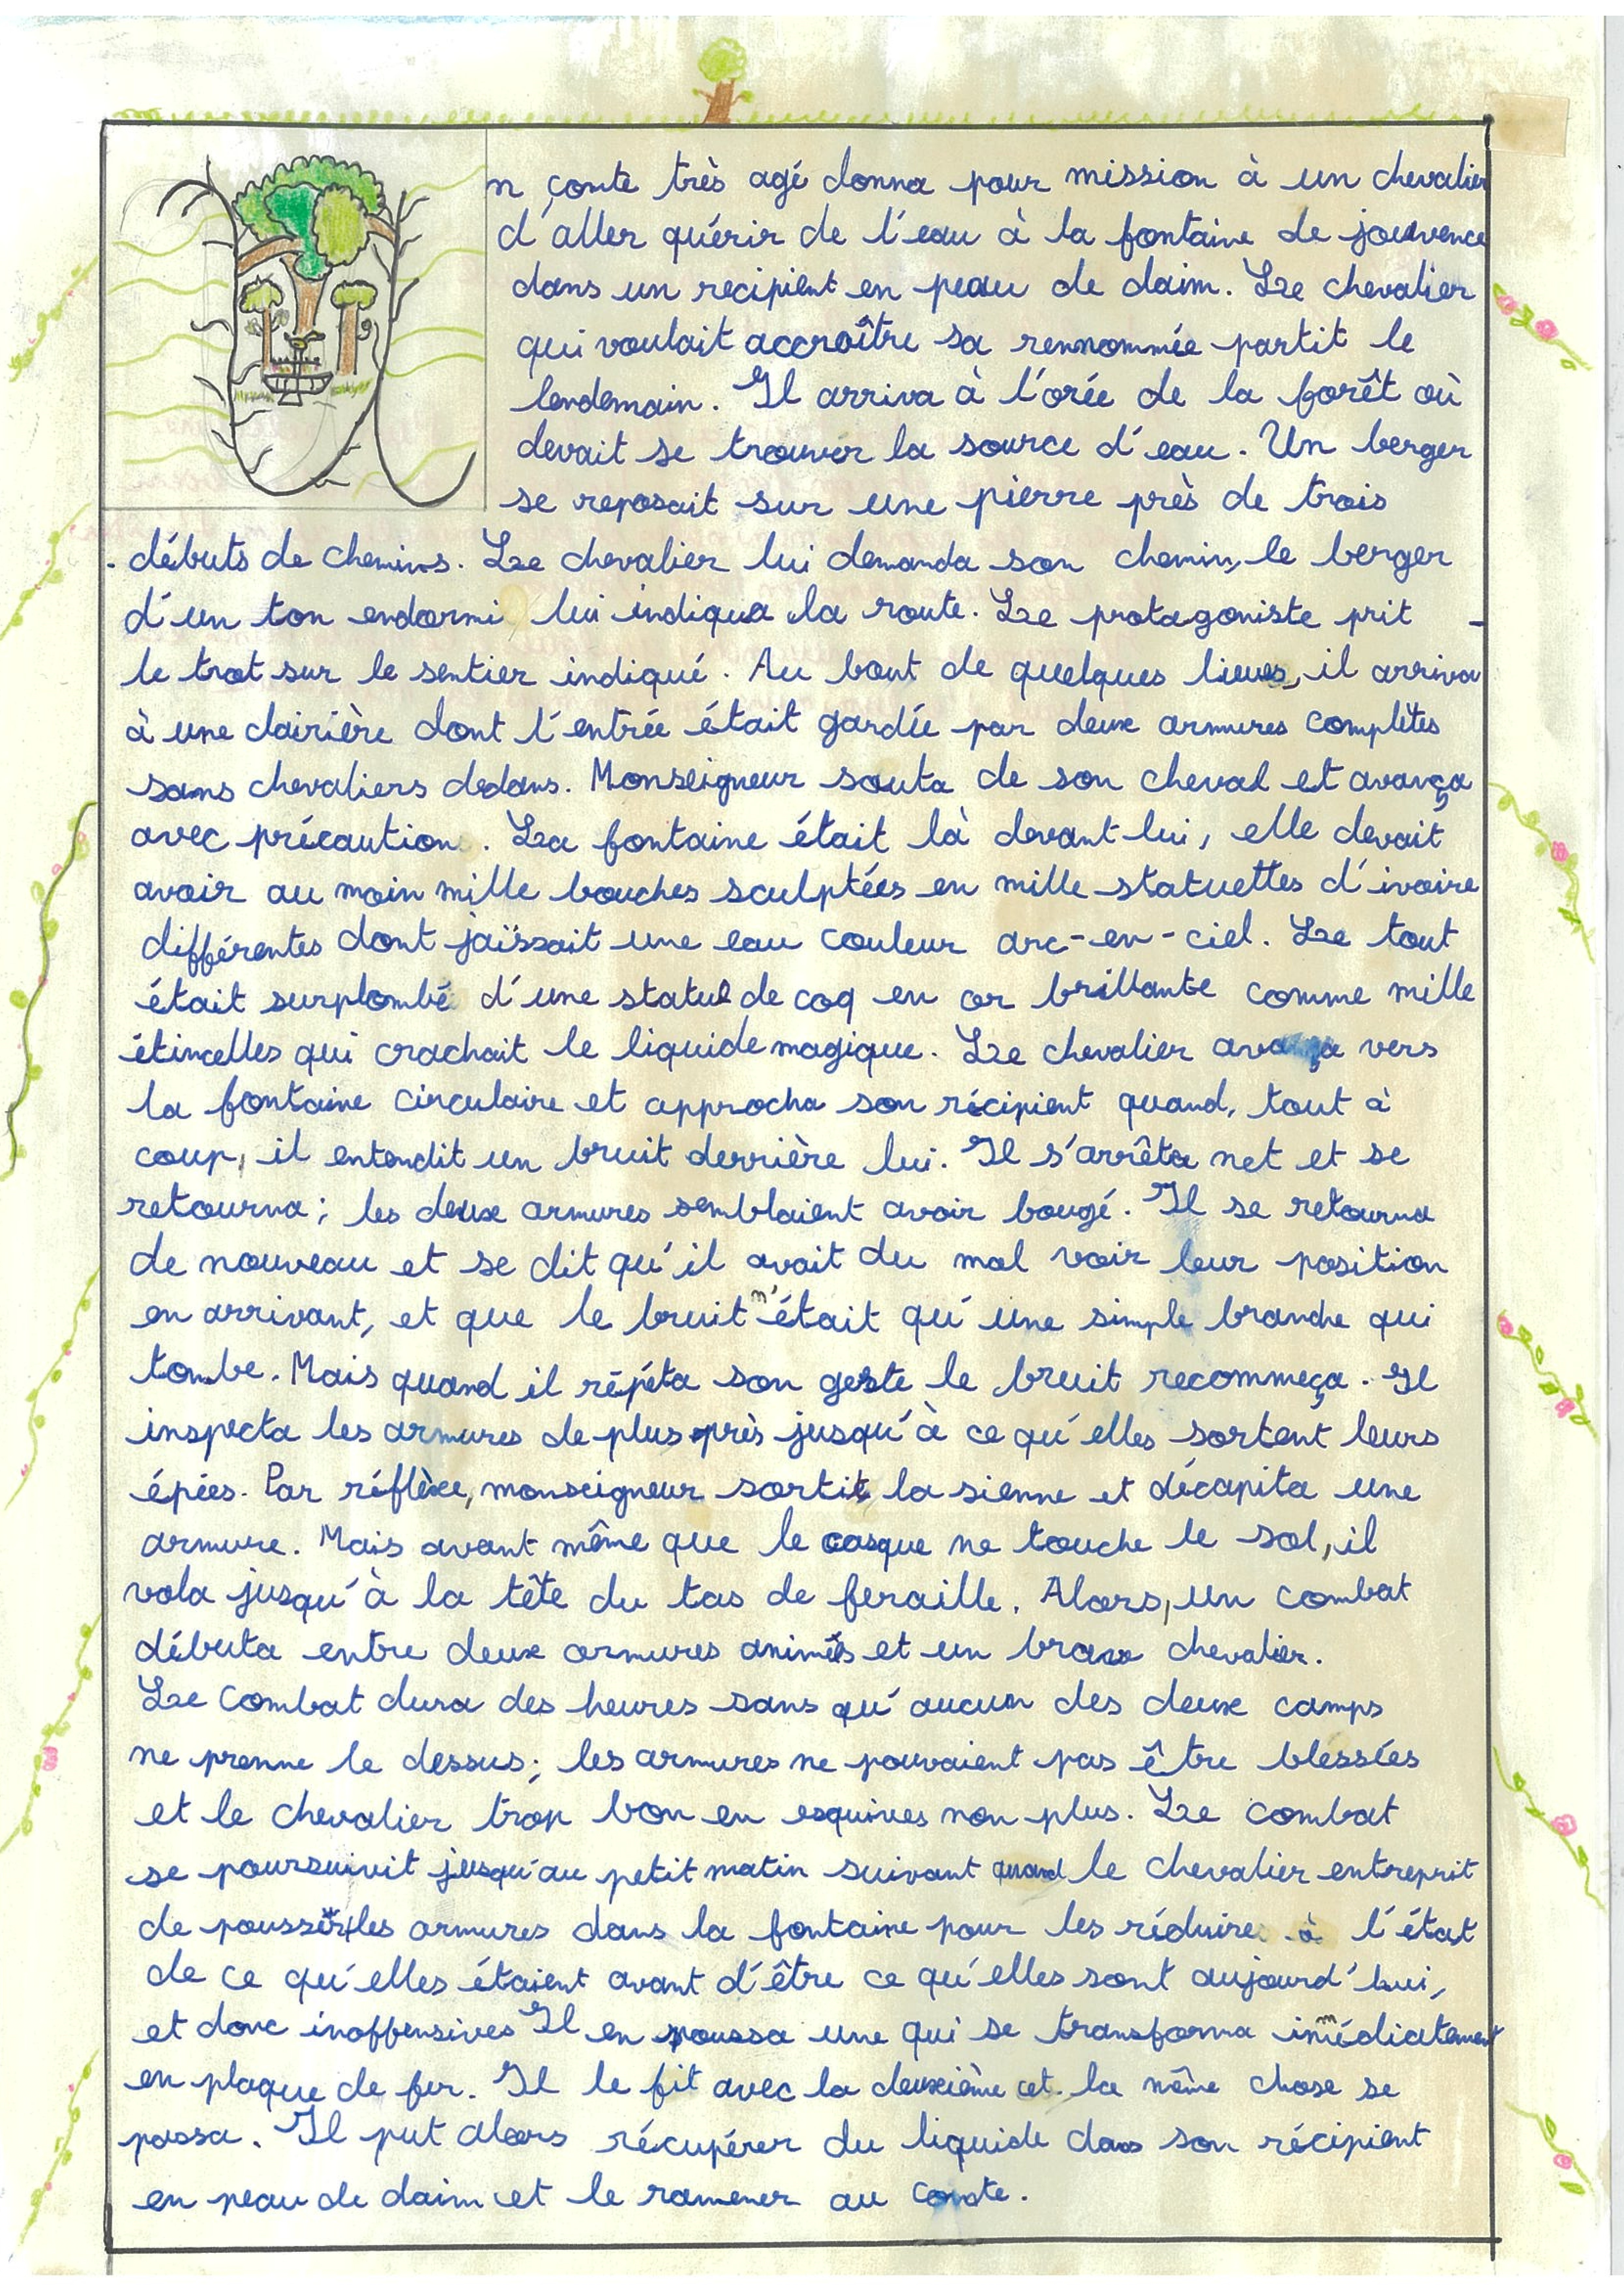 Un comte très agé donna pour mission à un chevalier
d'aller quérir de l'eau à la fontaine de jouvence
dans un recipient en peau de daim. Le chevalier
qui voulait accroître sa rennommée partit le
lendemain. Il arriva à l'orée de la forêt où
devait se trouver la source d'eau. Un berger
se reposait sur une pierre près de trois
débuts de chemins. Le chevalier lui demanda son chemin, le berger
d'un ton endormi lui indiqua la route. Le protagoniste prit
le trot sur le sentier indiqué. Au bout de quelques lieues, il arriva
à une clairière dont l'entrée était gardée par deux armures complètes
sans chevaliers dedans. Monseigneur sauta de son cheval et avança
avec précaution. La fontaine était là devant lui, elle devait
avoir au moin mille bouches sculptées en mille statuettes d'ivoire
différentes dont jaïssait une eau couleur arc-en-ciel. Le tout
était surplombé d'une statue de coq en or brillante comme mille
étincelles qui crachait le liquide magique. Le chevalier avança vers
la fontaine circulaire et approcha son récipient quand, tout à
coup, il entendit un bruit derrière lui. Il s'arrêta net et se
retourna ; les deux armures semblaient avoir bougé. Il se retourna
de nouveau et se dit qu'il avait du mal voir leur position
en arrivant, et que le bruit n'était qu'une simple branche qui
tombe. Mais quand il répéta son geste le bruit recommeça. Il
inspecta les armures de plus près jusqu'à ce qu'elles sortent leurs
épées. Par réflèxe, monseigneur sortit la sienne et décapita une
armure. Mais avant même que le casque ne touche le sol, il
vola jusqu'à la tête du tas de feraille. Alors, un combat
débuta entre deux armures animés et un brave chevalier.
Le combat dura des heures sans qu'aucun des deux camps
ne prenne le dessus ; les armures ne pouvaient pas être blessées
et le chevalier trop bon en esquives non plus. Le combat
se poursuivit jusqu'au petit matin suivant quand le chevalier entreprit
de pousser les armures dans la fontaine pour les réduire à l'état
de ce qu'elles étaient avant d'être ce qu'elles sont aujourd'hui,
et donc inoffensives Il en poussa une qui se transforma immédiatement
en plaque de fer. Il le fit avec la deuxième et la même chose se
passa. Il put alors récupérer du liquide dans son récipient
en peau de daim et le ramener au comte.